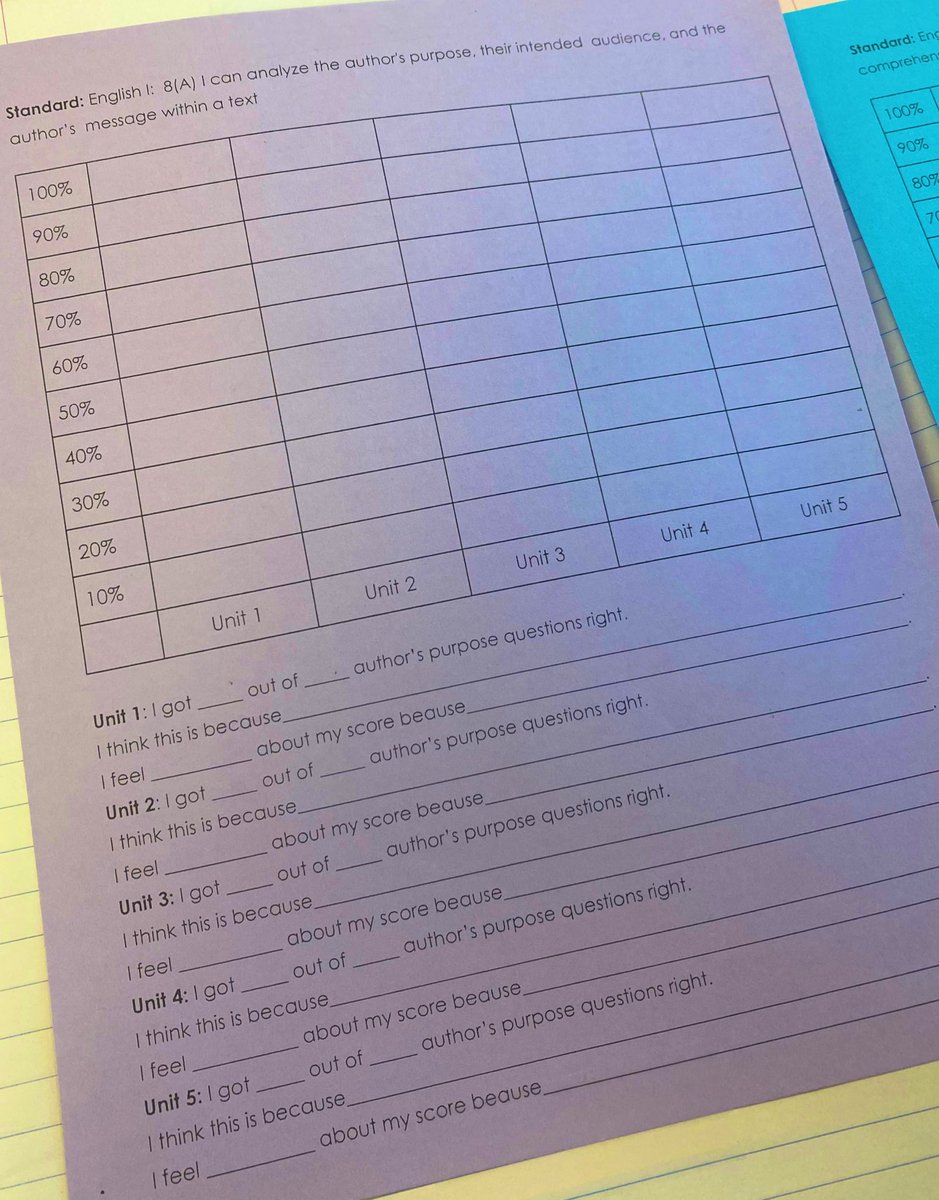 Standard: English I: 8(A) I can analyze the author's purpose, their intended audience, and the
author's message within a text
100%
90%
80%
70%
60%
50%
40%
30%
20%
10%
Unit 1 Unit 2 Unit 3 Unit 4 Unit 5
Unit 1: I got ____ out of ____ author's purpose questions right.
I think this is because____.
I feel ____ about my score beause____.
Unit 2: I got ____ out of ____ author's purpose questions right.
I think this is because____.
I feel ____ about my score beause____.
Unit 3: I got ____ out of ____ author's purpose questions right.
I think this is because____
I feel ____ about my score beause____
Unit 4: I got ____ out of ____ author's purpose questions right.
I think this is because____
I feel ____ about my score beause____
Unit 5: I got ____ out of ____ author's purpose questions right.
I think this is because____
I feel ____ about my score beause____
Standard: Eng
comprehen
100%
90%
80%